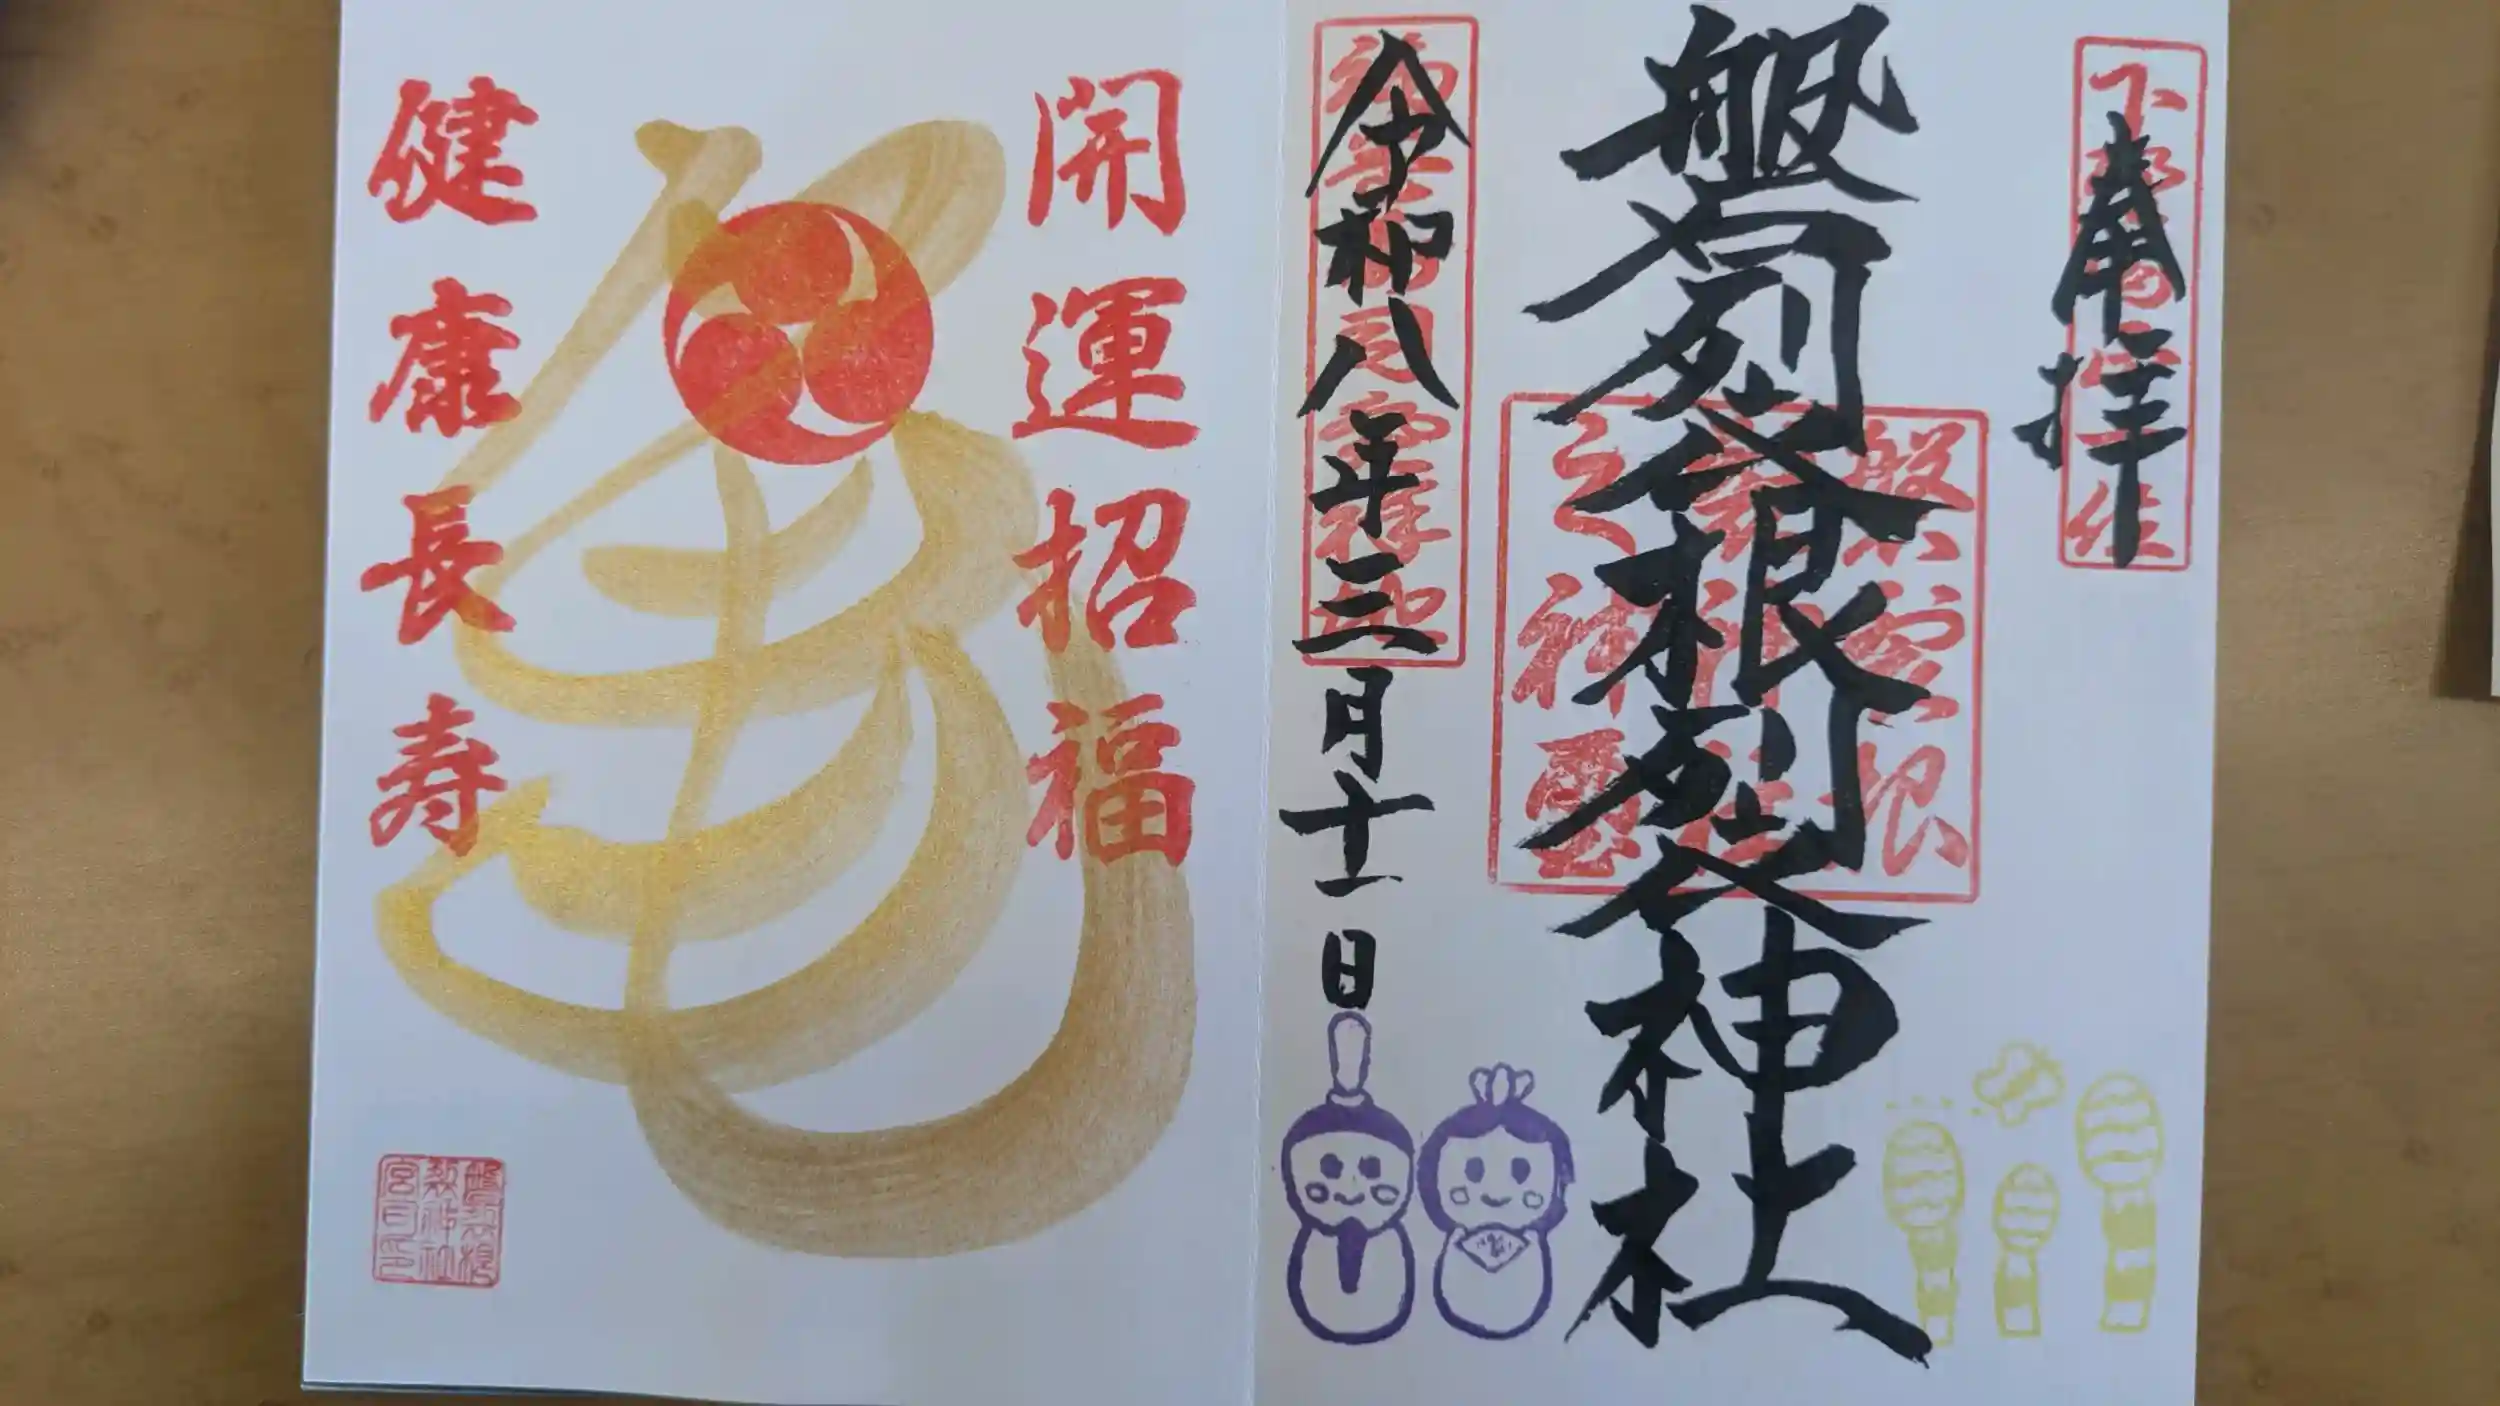 奉拝
磐裂根裂神社
磐裂根
裂神社
之神璽
令和八年三月十一日
開運招福
健康長寿
磐裂根
裂神社
宮司印